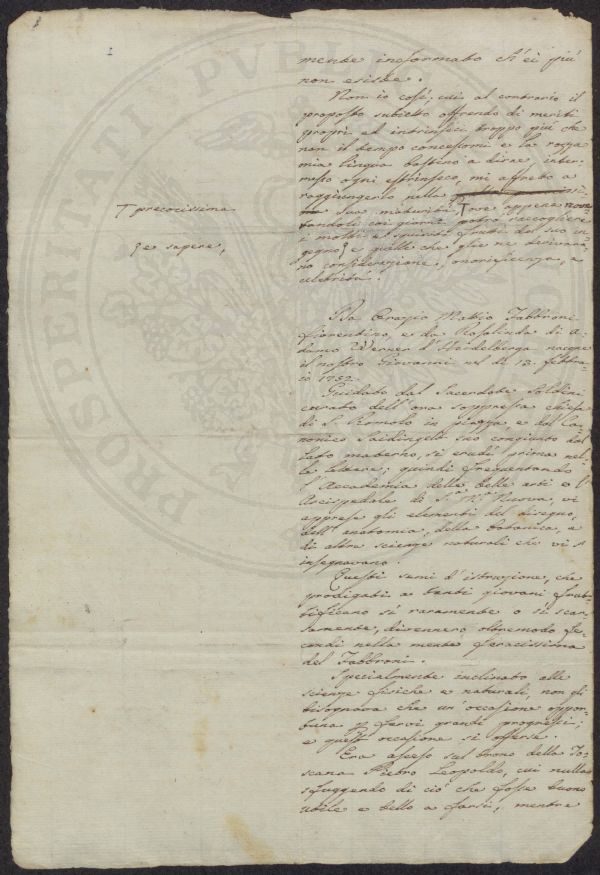 mente informato ch'ei più
non esiste.
Non io così, cui al contrario il
proposto subietto offrendo di meriti
proprj ed intrinseci troppo più che
non il tempo concessomi e la rozza
mia lingua bastino a dire, inter-
messo ogni estrinseco, mi affretto a
raggiungerlo nella
sua maturità, Ƭ ove appena
i molti e squisiti frutti del suo in-
gegno ? e quelle che glie ne derivaro-
no considerazione, onorificenza, e
celebrità.
Ƭ precocissima
? e sapere,
Da Orazio Mattio Fabbroni
fiorentino, e da Rosalinda di A-
damo Werner d'Heidelberga nacque
il nostro Giovanni nel dì 13. febbra-
io 1752.
Guidato dal Sacerdote Soldini
curato dell'ora soppressa chiesa
di S. Romolo in piazza, e dal Ca-
nonico suo congiunto dal
lato materno, si erudì prima nel-
le lettere; quindi frequentando
l'Accademia delle belle arti e l'
Arcispedale di S.ª M.ª Nuova, vi
apprese gli elementi del disegno,
dell'anatomia, della botanica, e
di altre scienze naturali che vi s'
insegnavano.
Questi semi d'istruzione, che
prodigati a tanti giovani frut-
tificano sì raramente o sì scar-
samente, divennero oltremodo fe-
condi nella mente feracissima
del Fabbroni.
Specialmente inclinato alle
scienze fisiche e naturali, non gli
bisognava che un'occasione oppor-
tuna p farvi grandi progressi;
e quest'occasione si offerse.
Era asceso sul trono della To-
scana Pietro Leopoldo, cui nulla
sfuggendo di ciò che fosse buono
utile e bello a farsi, mentre